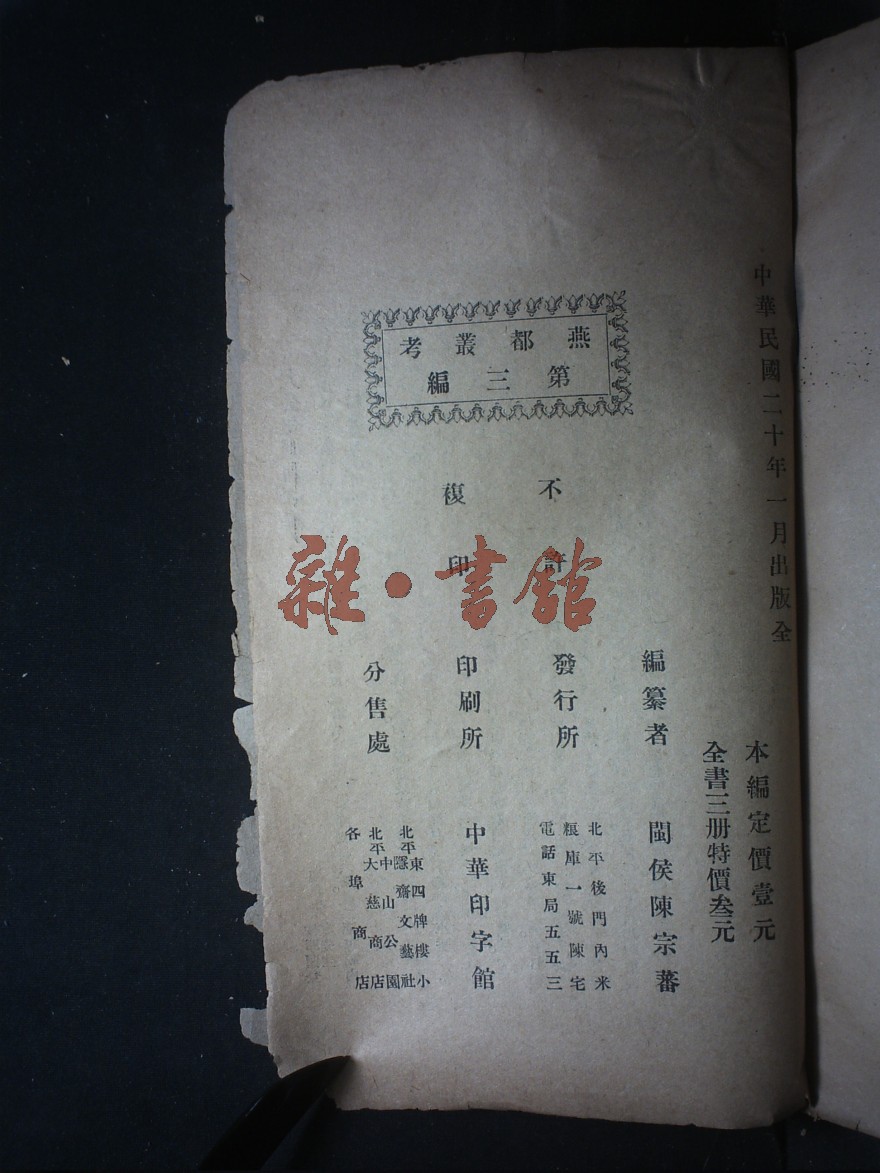 中華民國二十年一月出版全
本編定價壹元
全書三册特價叁元
燕都叢考
第三編
不許
複印
編纂者
閩侯陳宗蕃
發行所
北平後門內米
粮庫一號陳宅
電話東局五五三
印刷所
中華印字館
分售處
北平東四牌樓小
隱齋文藝社
北平中山公園
大慈商店
各埠商店
雜·書館